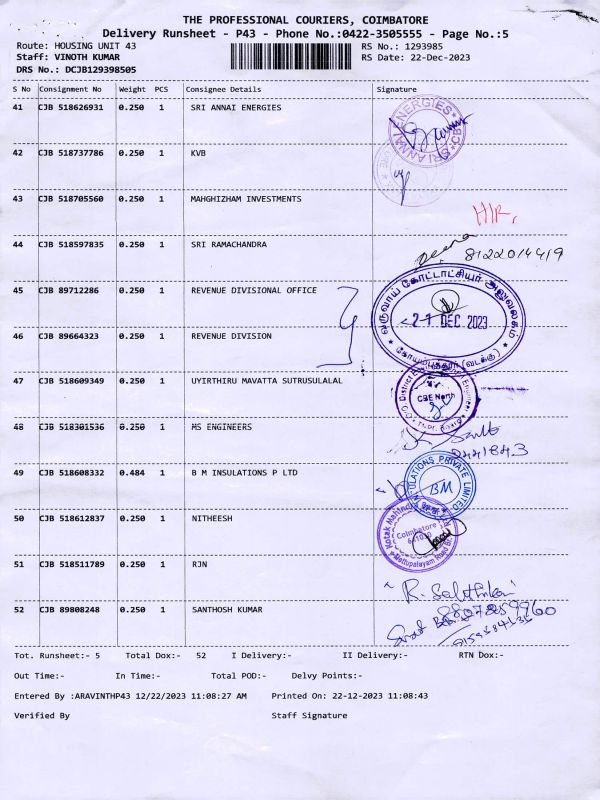 THE PROFESSIONAL COURIERS, COIMBATORE
Delivery Runsheet - P43 - Phone No.:0422-3505555 - Page No.:5
Route: HOUSING UNIT 43 RS No.: 1293985
Staff: VINOTH KUMAR RS Date: 22-Dec-2023
DRS No.: DCJB129398505
S No Consignment No Weight PCS Consignee Details Signature
41 CJB 518626931 0.250 1 SRI ANNAI ENERGIES
SRI ANNAI ENERGIES * CBE
42 CJB 518737786 0.250 1 KVB
43 CJB 518705560 0.250 1 MAHGHIZHAM INVESTMENTS
HR,
44 CJB 518597835 0.250 1 SRI RAMACHANDRA
8122014419
45 CJB 89712286 0.250 1 REVENUE DIVISIONAL OFFICE
வருவாய் கோட்டாட்சியர் அலுவலகம்
27 DEC 2023
கோயம்புத்தூர் (வடக்கு)
46 CJB 89664323 0.250 1 REVENUE DIVISION
47 CJB 518609349 0.250 1 UYIRTHIRU MAVATTA SUTRUSULALAL
CBE North
48 CJB 518301536 0.250 1 MS ENGINEERS
49 CJB 518608332 0.484 1 B M INSULATIONS P LTD
PRIVATE LIMITED
BM
50 CJB 518612837 0.250 1 NITHEESH
Kotak Mahindra
Coimbatore
Mettupalayam Road
51 CJB 518511789 0.250 1 RJN
52 CJB 89808248 0.250 1 SANTHOSH KUMAR
Tot. Runsheet:- 5 Total Dox:- 52 I Delivery:- II Delivery:- RTN Dox:-
Out Time:- In Time:- Total POD:- Delvy Points:-
Entered By :ARAVINTHP43 12/22/2023 11:08:27 AM Printed On: 22-12-2023 11:08:43
Verified By Staff Signature